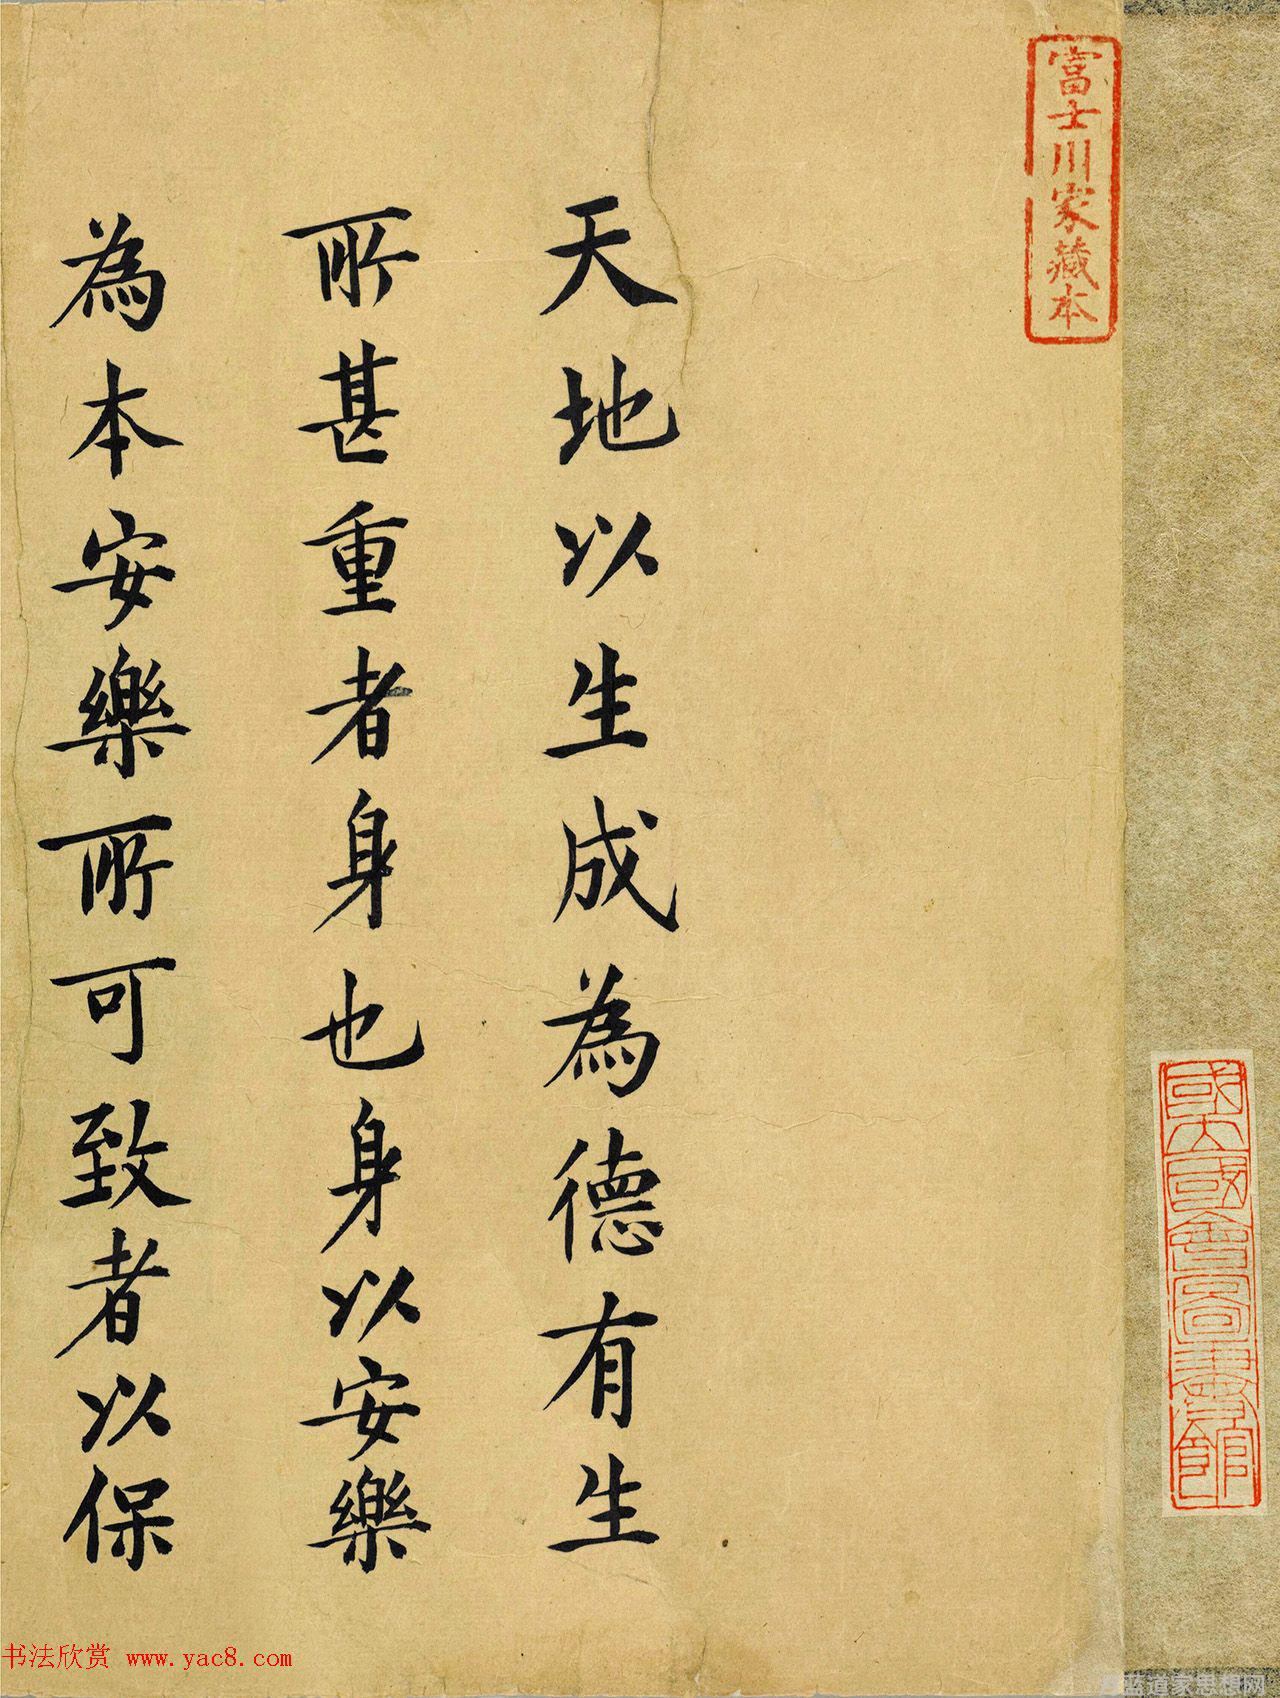 富士川家藏本
天地以生成為德有生
所甚重者身也身以安樂
為本安樂所可致者以保
國立國會圖書館
书法欣赏 www.yac8.com
道家思想网